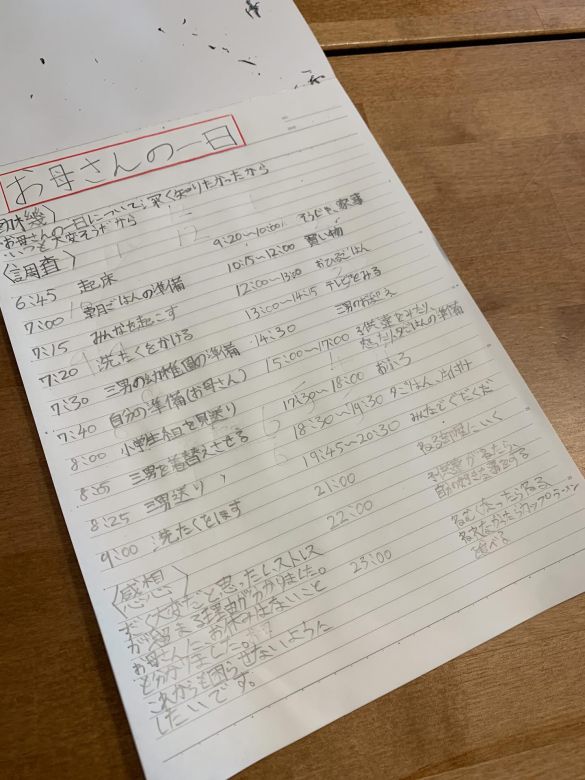 お母さんの一日
〈動機〉
お母さんの一日について深く知りたかったから
いつも大変そうだから
〈調査〉
6:45 起床
7:00 朝ごはんの準備
7:15 みんなを起こす
7:20 洗たくをかける
7:30 三男の幼稚園の準備
7:40 自分の準備(お母さん)
8:00 小学生組を見送り
8:15 三男を着替えさせる
8:25 三男送り
9:00 洗たくをほす
9:20〜10:00 そうじ、家事
10:15〜12:00 買い物
12:00〜13:00 おひるごはん
13:00〜14:15 テレビをみる
14:30 三男のお迎え
15:00〜17:00 子供達をみたり、
夕ごはんの準備
17:30〜18:00 おふろ
18:30〜19:30 夕ごはん、片付け
19:45〜20:30 みんなでぐだぐだ
21:00 ねる部屋にいく
22:00 子供達がねたら
自分の好きな事をする
23:00 ねむくなったらねる
ねれなかったらカップラーメン
を食べる
〈感想〉
すごく大変だと思ったしストレス
が留まる理由が分かりました。
お母さんにお休みはないこと
も分かりました。
これからも困らせないように
したいです。